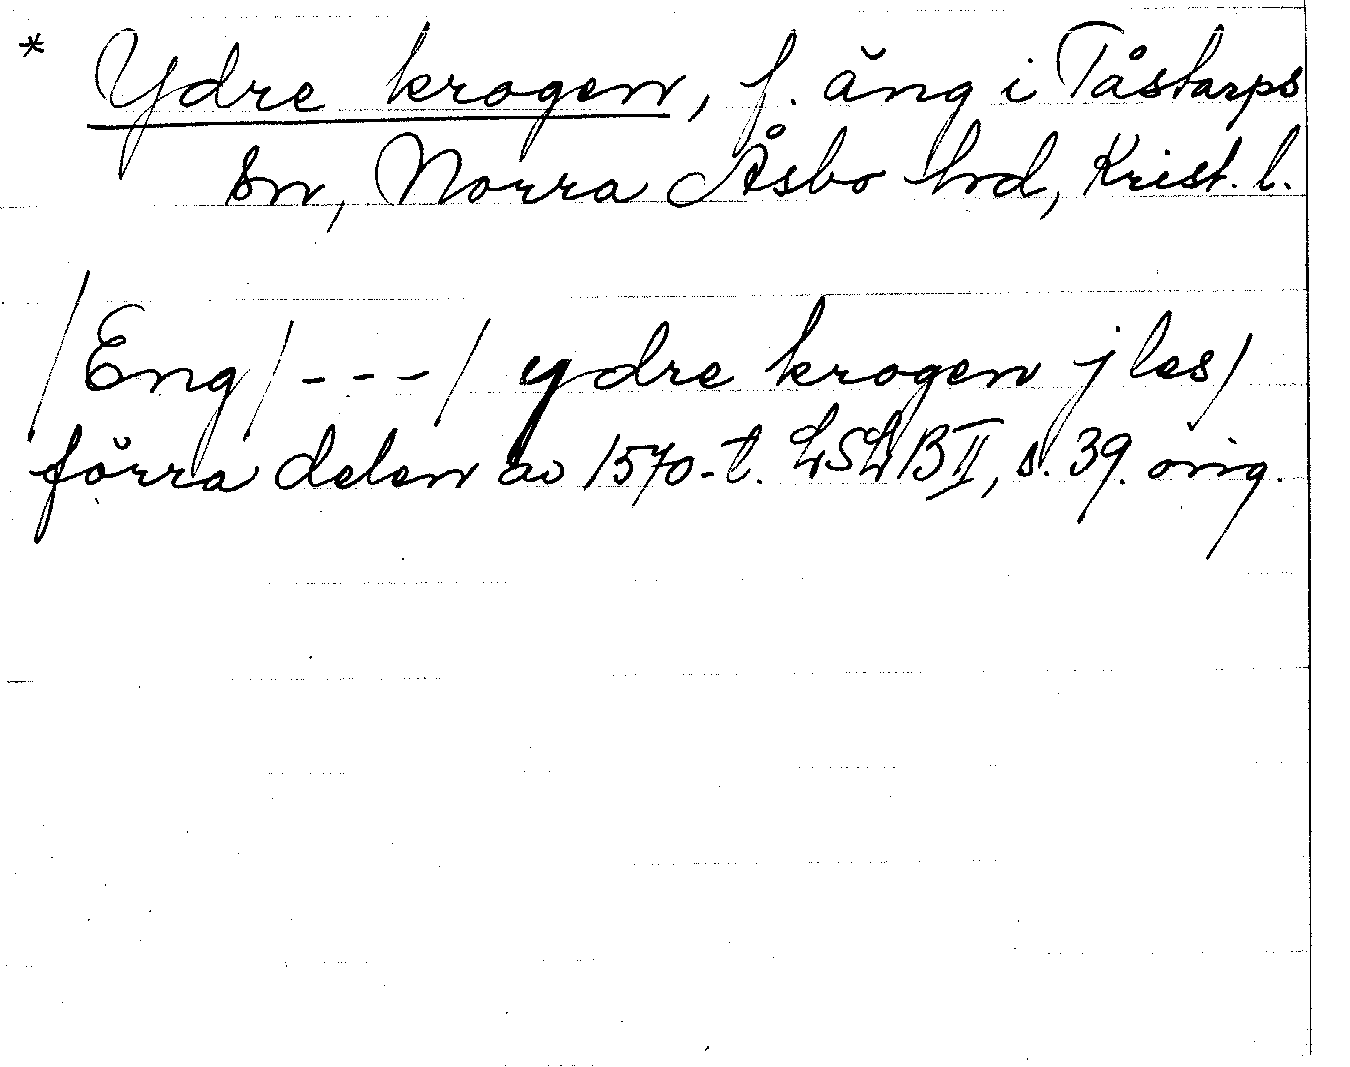 * Ydre krogen, f. äng i Tåstarps
sn, Norra Åsbo hd, Krist. l.
/Eng/---/ ydre krogen j les/
förra delen av 1570-t. LSLB II, s. 39. orig.